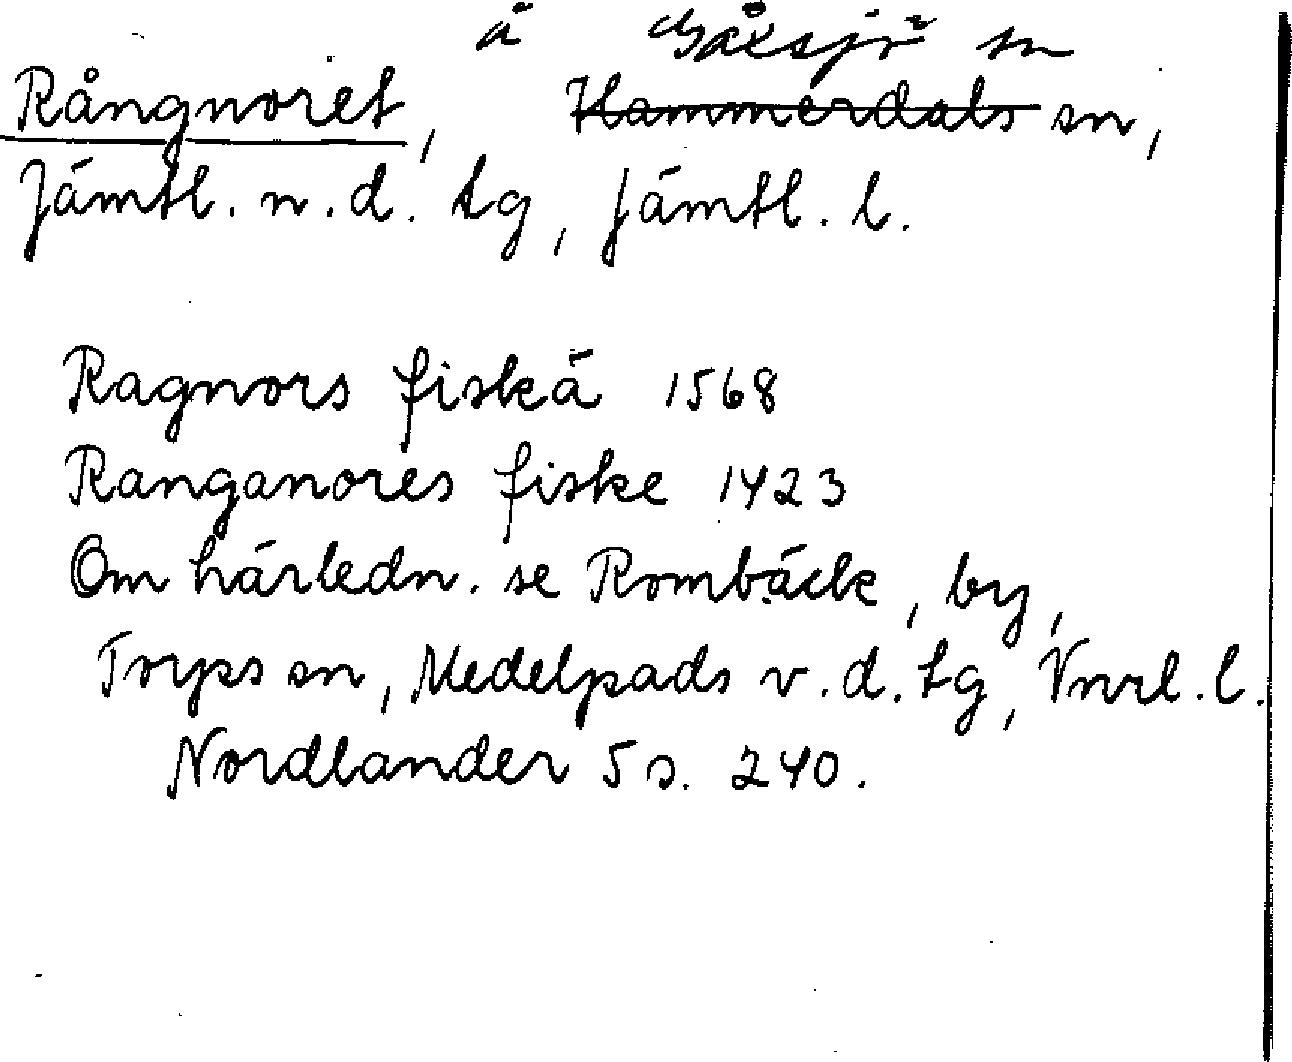 å Gåxsjö sn
Rångnoret, Hammerdals sn,
Jämtl. n. d. tg, Jämtl. l.
Ragnors fiskä 1568
Ranganores fiske 1423
Om härledn. se Rombäck, by,
Torps sn, Medelpads v. d. tg, Vnrl. l.
Nordlander 5 s. 240.